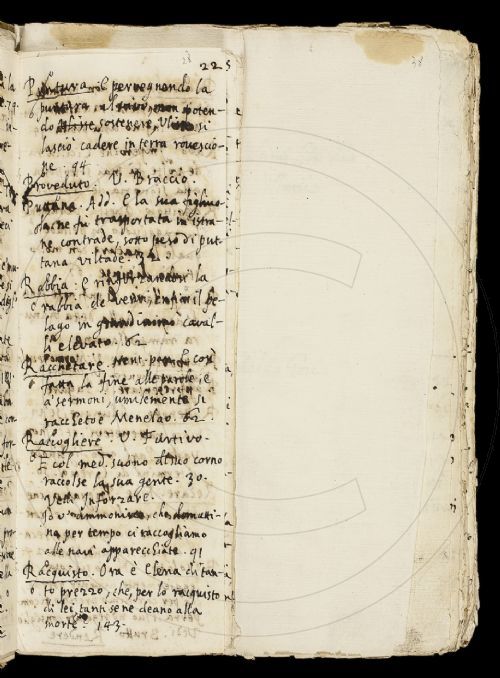 28 225
38
Puntura. E pervegnendo la
puntura, non poten-
do sostenere, Ulisse si
lasciò cadere in terra rovescio-
ne. 94
Proveduto. V. Braccio.
Puttana. Add. E la sua figliuo-
la ne fu trasportata in istra-
ne contrade, sotto peso di put-
tana viltade. 32
Rabbia. E rinforzandosi la
rabbia de' venti, enfiò il pe-
lago in caval-
li elevato. 62
Racchetare. E così
fatta la fine alle parole, e
a' sermoni, umilemente si
racchetoe Menelao. 62
Raccogliere. V. Furtivo.
E col med. suono di suo corno
raccolse la sua gente. 30.
Vedi Inforzare.
Io v'ammonisco, che domatti-
na per tempo ci raccogliamo
alle navi apparecchiate. 91
Racquisto. Ora è Elena di tan-
to prezzo, che, per lo racquisto
di lei, tanti se ne deano alla
morte. 143.